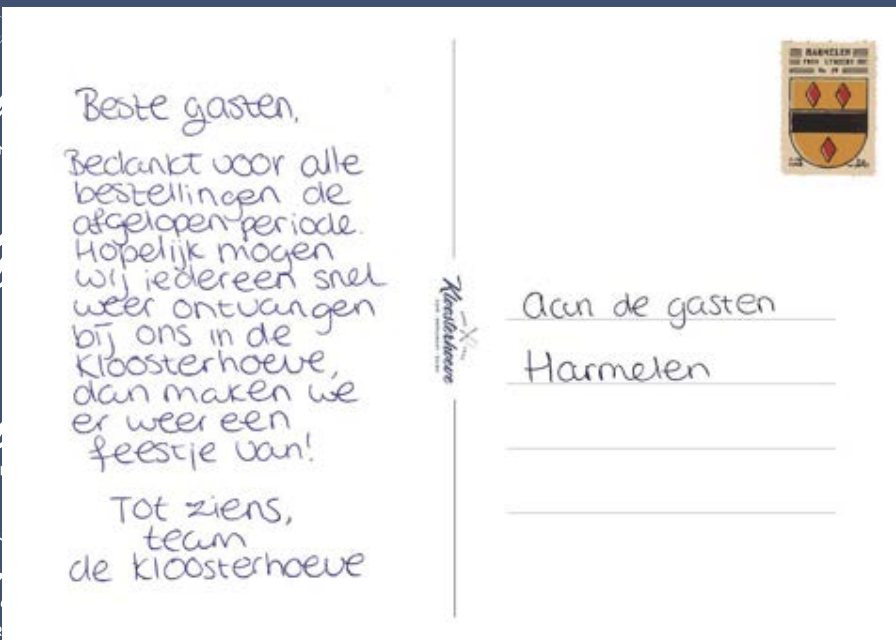 Beste gasten,
Bedankt voor alle
bestellingen de
afgelopen periode.
Hopelijk mogen
wij iedereen snel
weer ontvangen
bij ons in de
Kloosterhoeve,
dan maken we
er weer een
feestje van!
Tot ziens,
team
de kloosterhoeve
Kloosterhoeve
HARMELEN
Aan de gasten
Harmelen